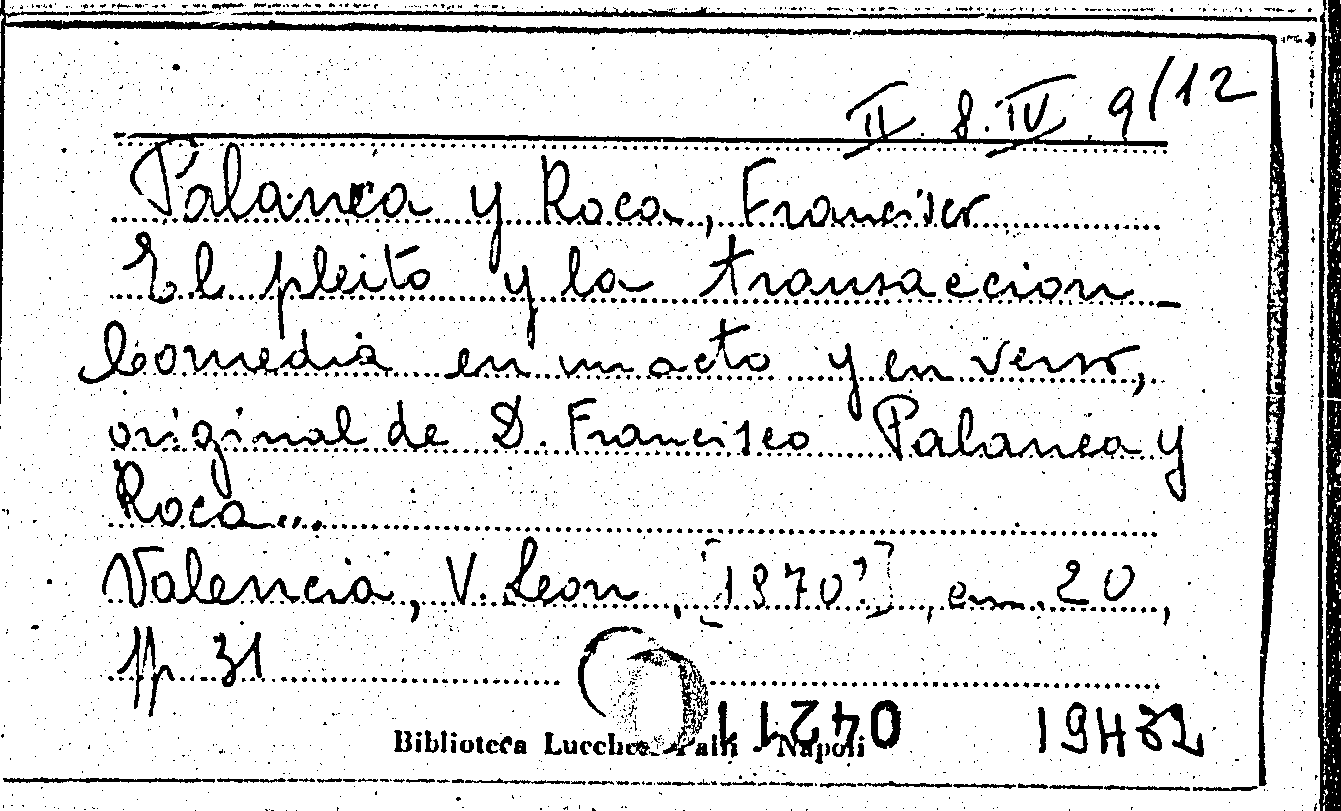 II. 8. IV. 9/12
Palanca y Roca, Francisco
El pleito y la transaccion _
Comedia en un acto y en verso,
original de D. Francisco Palanca y
Roca...
Valencia, V. Leon, [1870?], cm. 20,
pp. 31
19432
Biblioteca Lucchesi Palli - Napoli